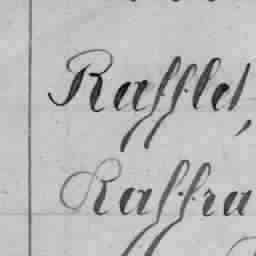 Rafflet,
Raffra